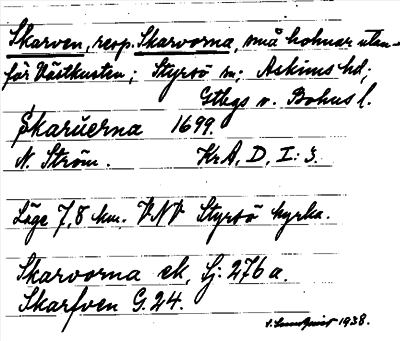 Skarven, resp. Skarvorna, små holmar utan-
för Västkusten; Styrsö sn; Askims hd;
Gtbgs o. Bohus l.
Skarüerna 1699.
N. Ström. KrA, D, I: 3.
Läge 7,8 km. VNV Styrsö kyrka.
Skarvorna ek, Sj: 276 a.
Skarfven G. 24.
1938.